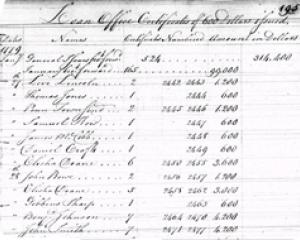 195
Loan Office Certificates of 600 dollars issued,
Dates Names Certificates Numbered Amount in Dollars
1779
524 314,400
" 165 99,000
27 Love Lincoln 2 2442 2443 1.200
" Thomas Jones 1 2444 600
" 2 2445 2446 1.200
" Samuel 1 2447 600
" James 1 2448 600
" Samuel 1 2449 600
" Elisha Doane 6 2450 2455 3.600
28 John Rowe 2 2456 2457 1.200
" Elisha Doane 5 2458 2462 3.000
" Gibbins Sharp 1 2463 600
" Benj Johnson 7 2464 2470 4.200
" Jean Smith 7 2471 2477 4.200